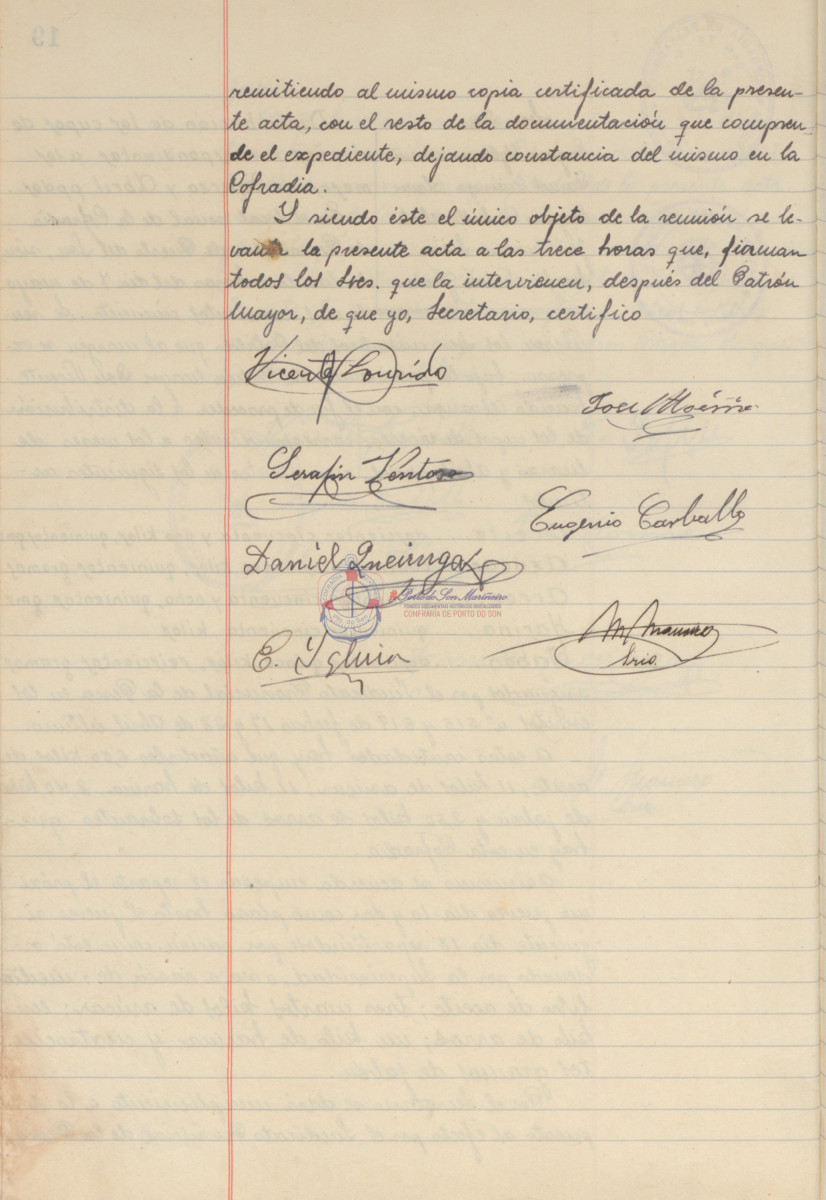 remitiendo al mismo copia certificada de la presen-
te acta, con el resto de la documentación que compren-
de el expediente, dejando constancia del mismo en la
Cofradia.
Y siendo éste el único objeto de la reunión se le-
vanta la presente acta a las trece horas que, firman
todos los Sres. que la intervienen, después del Patrón
Mayor, de que yo, Secretario, certifico
Vicente Lourido
Jose
Serafin Ventoso
Eugenio Carballo
Daniel Queiruga
Porto do Son Mariñeiro
FONDOS DOCUMENTAIS HISTÓRICOS DIXITALIZADOS
CONFRARÍA DE PORTO DO SON
E.
M.
Srio.